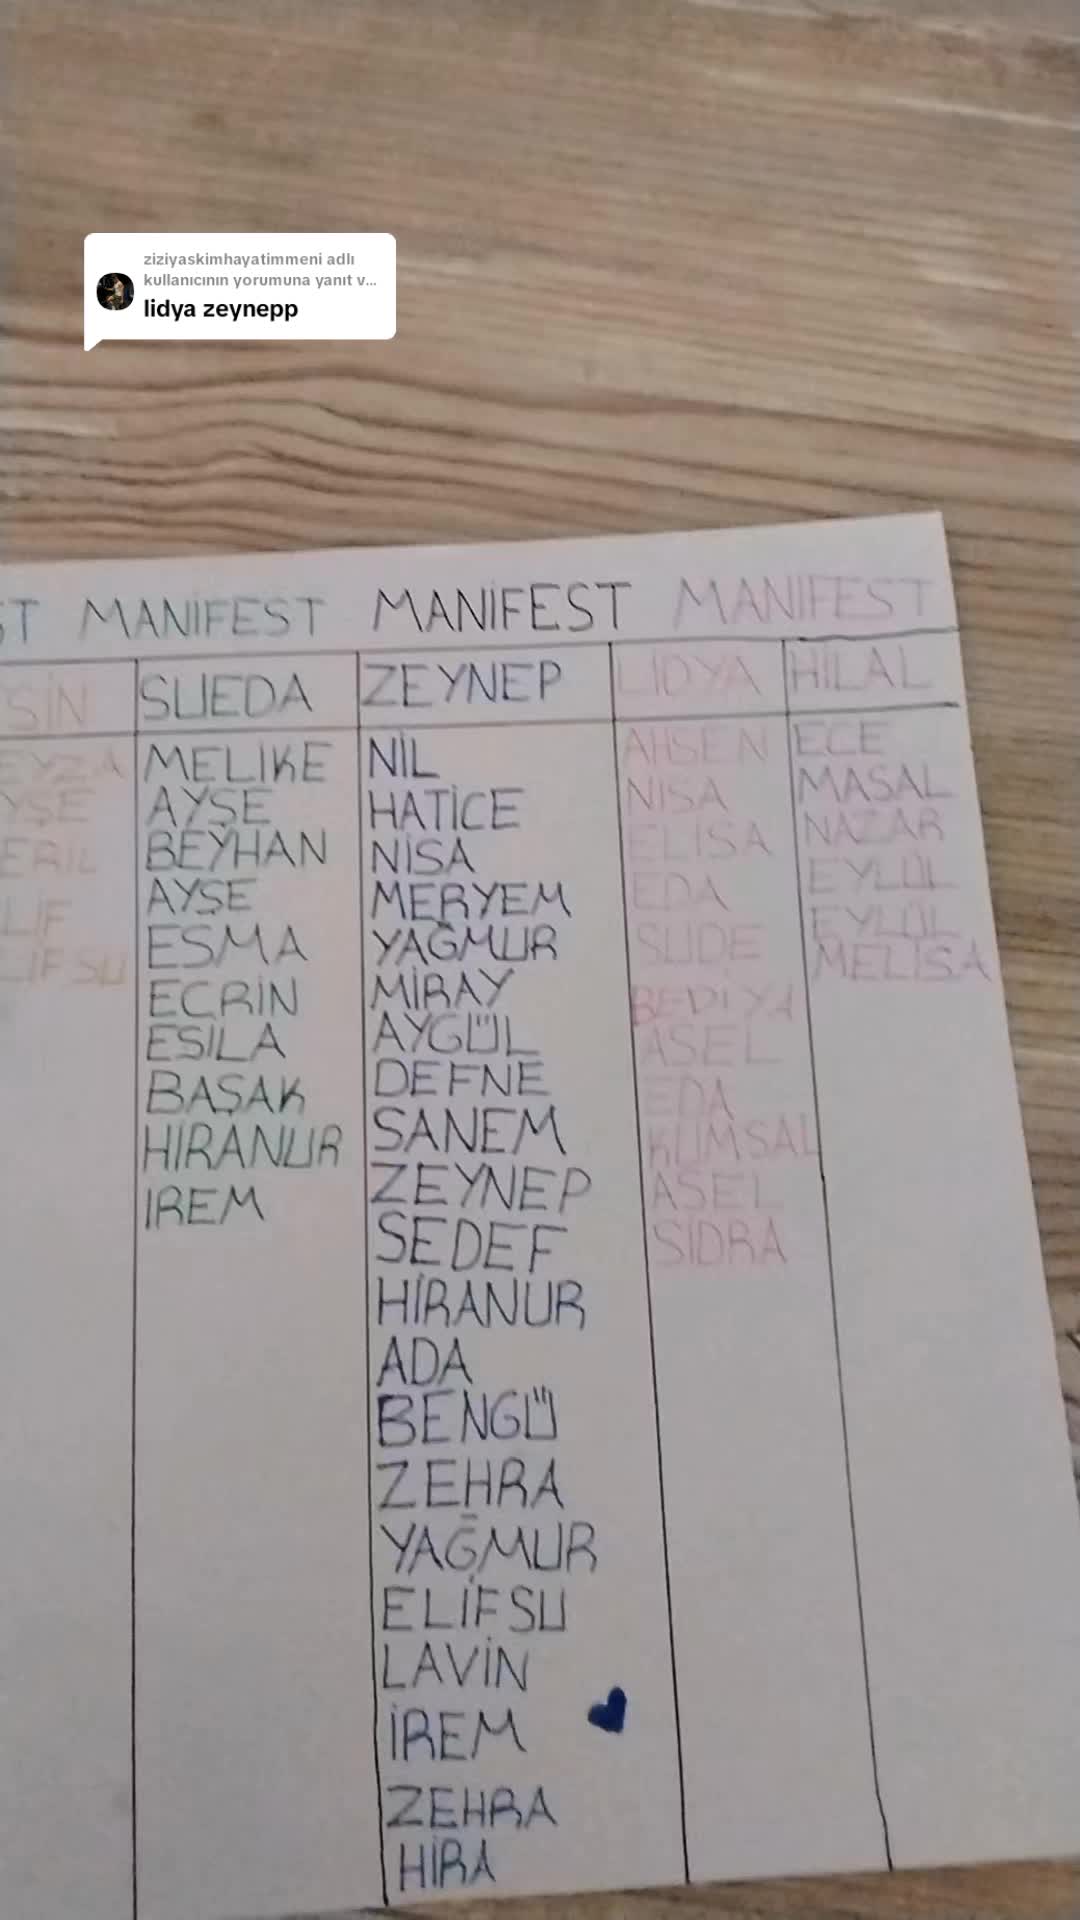 ziziyaskimhayatimmeni adlı
kullanıcının yorumuna yanıt v...
lidya zeynepp
ST MANİFEST MANİFEST MANIFEST
SİN
EYZA
YŞE
ERİL
LİF
LİFSU
SUEDA
MELİKE
AYŞE
BEYHAN
AYŞE
ESMA
ECRİN
ESİLA
BAŞAK
HİRANUR
İREM
ZEYNEP
NİL
HATİCE
NİSA
MERYEM
YAĞMUR
MİRAY
AYGÜL
DEFNE
SANEM
ZEYNEP
SEDEF
HİRANUR
ADA
BENGÜ
ZEHRA
YAĞMUR
ELİFSU
LAVİN
İREM
ZEHRA
HİRA
LİDYA
AHSEN
NİSA
ELİSA
EDA
SUDE
BEDİYA
ASEL
EDA
KUMSAL
ASEL
SİDRA
HİLAL
ECE
MASAL
NAZAR
EYLÜL
EYLÜL
MELİSA